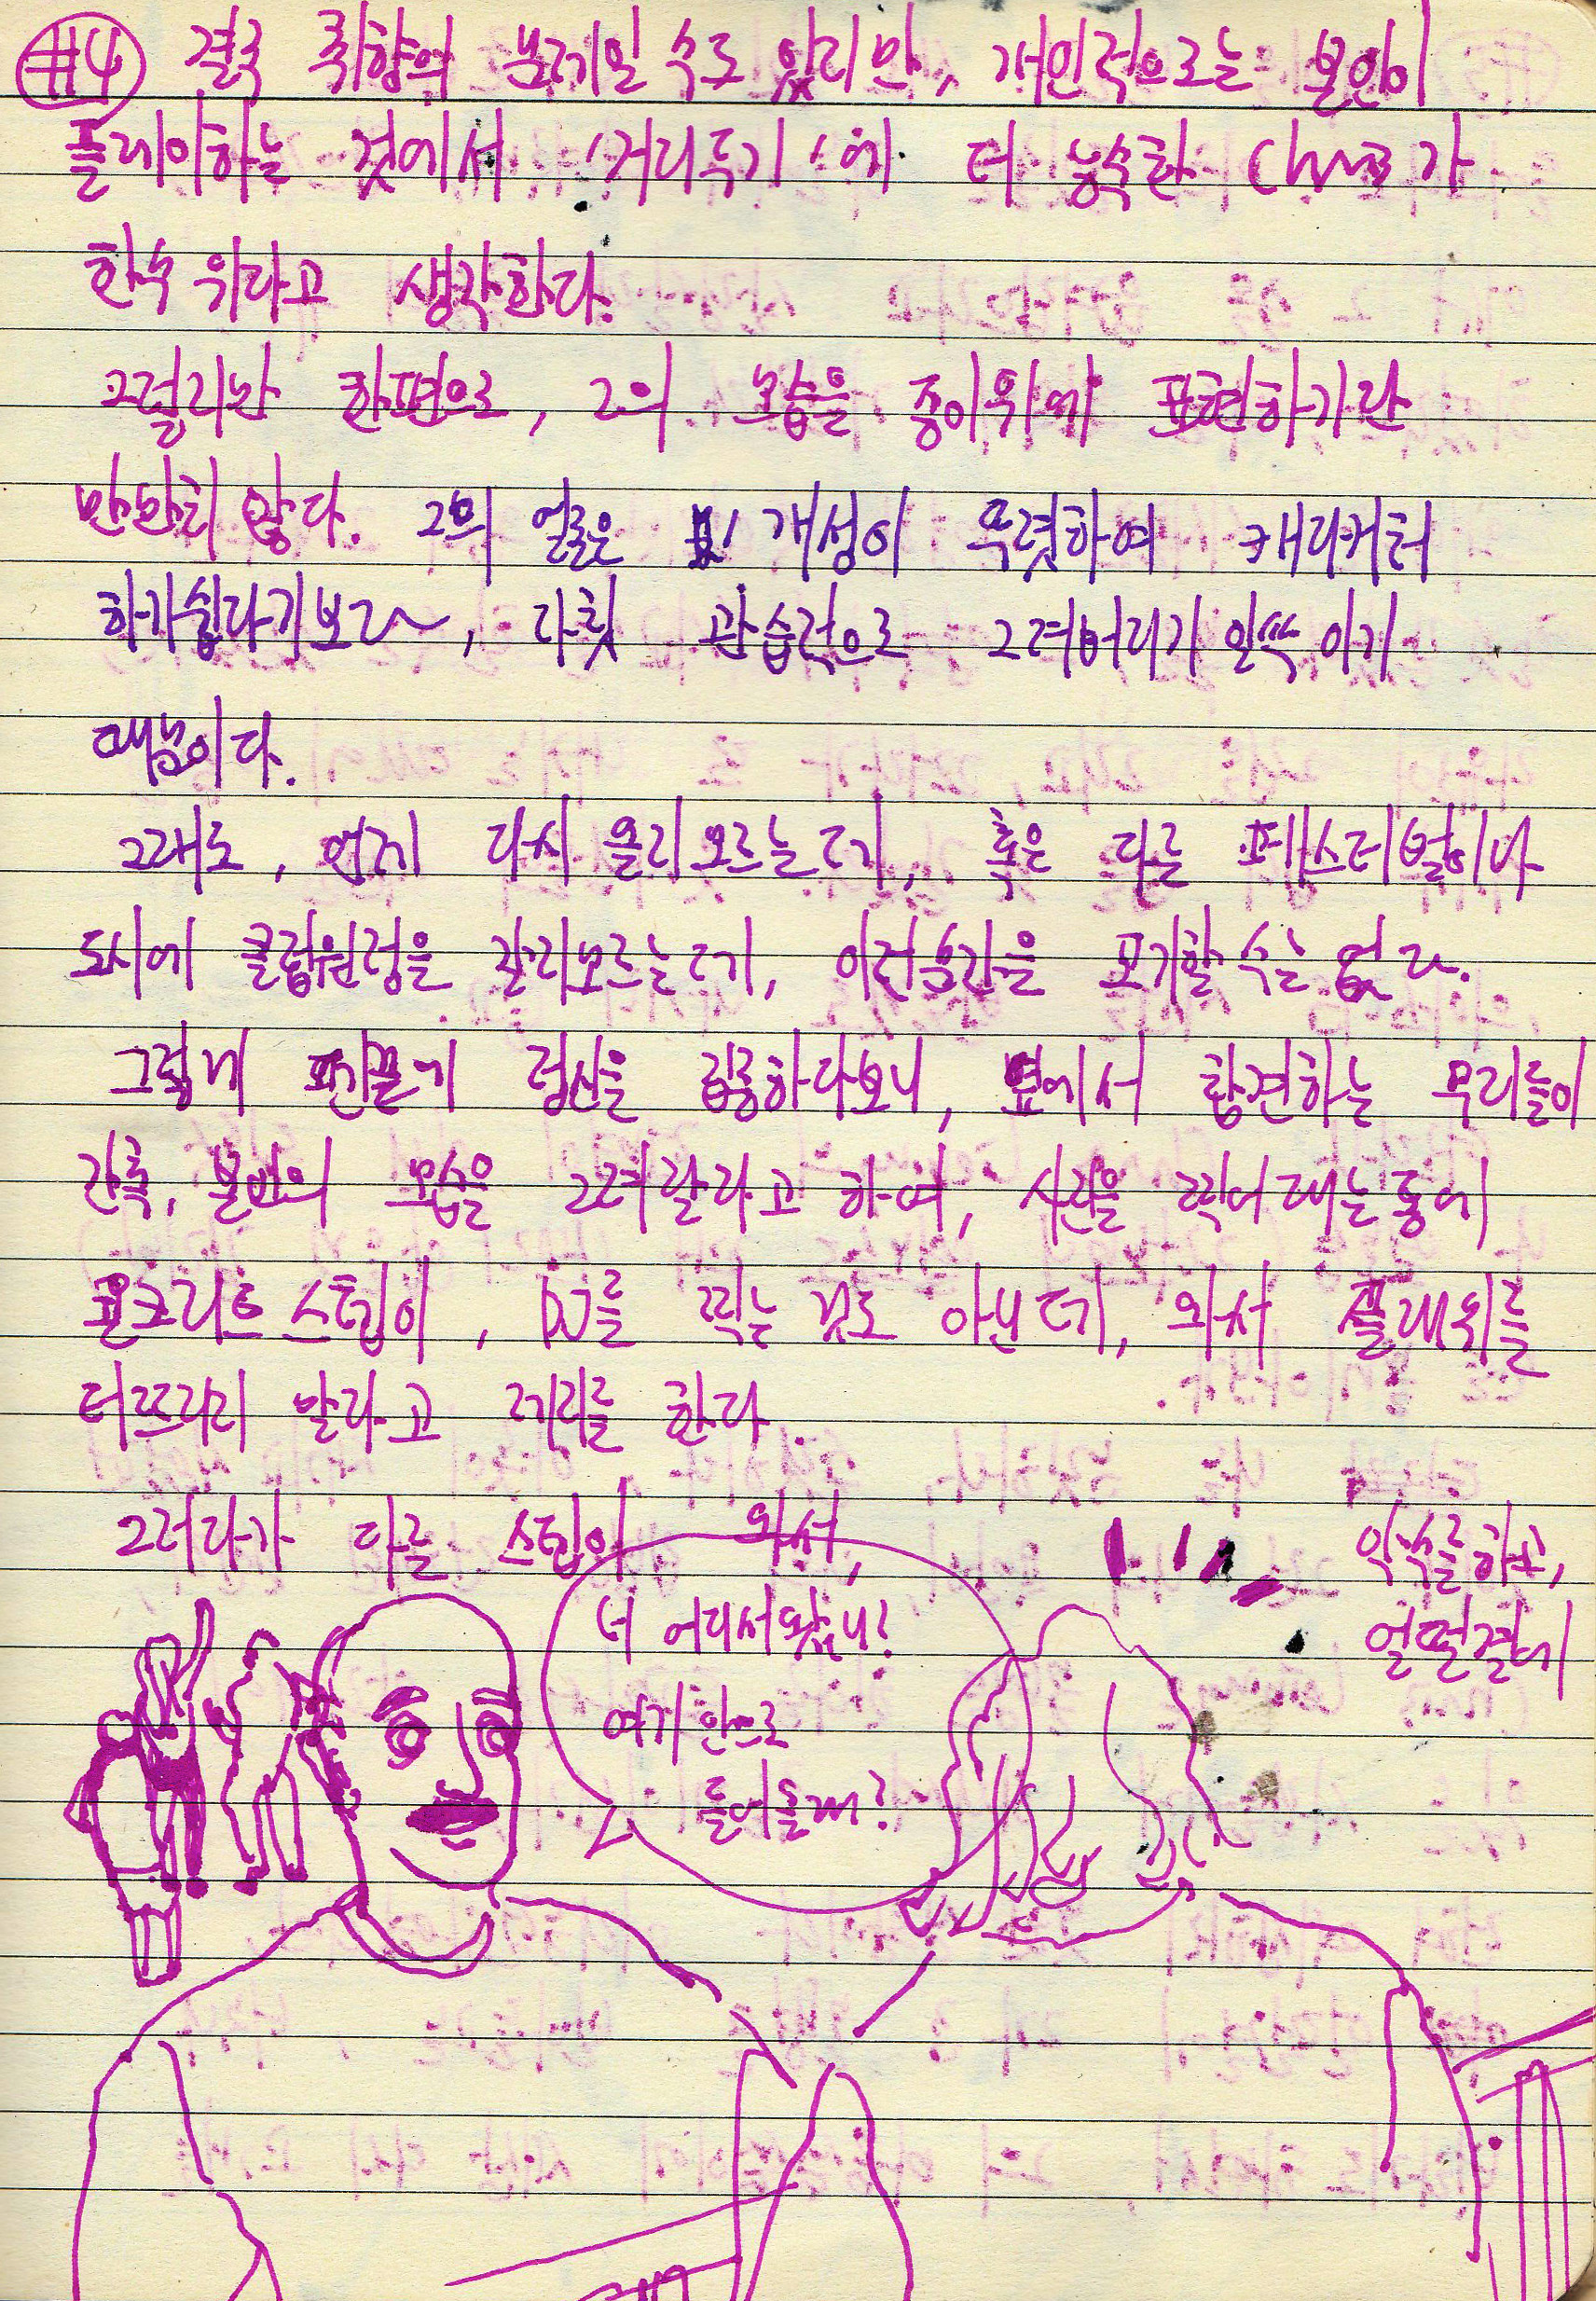 #4 결국 취향의 문제일 수도 있지만, 개인적으로는 본인이
플레이하는 것에서 '거리두기'에 더 능숙한 Chris가
한수 위라고 생각한다.
그렇지만 한편으로, 그의 모습을 종이위에 표현하기란
만만치 않다. 그의 얼굴은 개성이 뚜렷하여 캐리커쳐
하기 쉽다기보다, 자칫 관습적으로 그려버리기 일쑤이기
때문이다.
그래도, 언제 다시 올지 모르는데, 혹은 다른 페스티벌이나
도시에 클럽원정을 갈지 모르는데, 이런순간을 포기할 수는 없다.
그렇게 펜끝에 정신을 집중하다보니, 옆에서 참견하는 무리들이
간혹, 본인의 모습을 그려달라고 하여, 사진을 찍어대는 통에
콘크리트 스탭이, DJ를 찍는 것도 아닌데, 와서 플래쉬를
터뜨리지 말라고 제지를 한다.
그러다가 다른 스탭이 와서, 악수를 하고,
얼떨결에
너 어디서 왔니?
여기 안으로
들어올래?